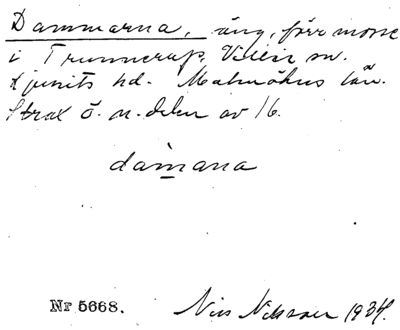 Dammarna, äng, förr mosse
i Trunnerup, Villie sn.
Ljunits hd. Malmöhus län.
Strax ö. n. delen av 16.
dam̲ana
Nr 5668. Nils Nilsson 1934.